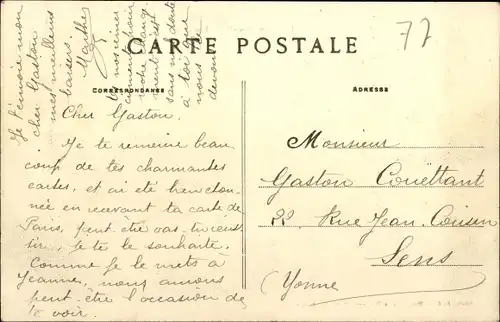 CARTE POSTALE
77
CORRESPONDANCE
ADRESSE
Cher Gaston.
Je te remercie beau
coup de tes charmantes
cartes, et ai été bien éton
née en recevant ta carte de
Paris, peut être vas-tu
Je te le souhaite.
Comme je le mets à
Jeanne, nous aurons
peut-être l'occasion de
te voir.
sans doute
à toi que
nous
devons
Je t'envoie mon
cher Gaston
mes meilleurs
baisers.
Marthe
Monsieur
Gaston Couëttant
22, Rue Jean Cousin
Sens
(Yonne)